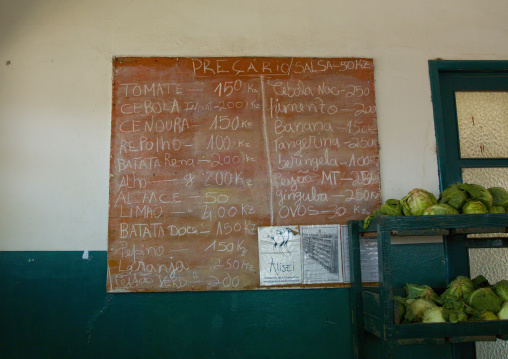 PREÇÁRIO/SALSA-50Kz
TOMATE — 150 Kz
CEBOLA 200 Kz
CENOURA — 150 Kz
REPOLHO — 100 Kz
BATATA Rena — 200 Kz
Alho — 200 Kz
ALFACE — 50
LIMÃO — 400 Kz
BATATA Doce — 150 Kz
Pepino — 150 Kz
Laranja 250 Kz
Feijão VERDE 200
Cebola Nac-250
Pimento - 200
Banana - 150
Tangerina - 250
Beringela - 100
Feijão MT - 250
Ginguba - 250
OVOS - 30 Kz
Alisei